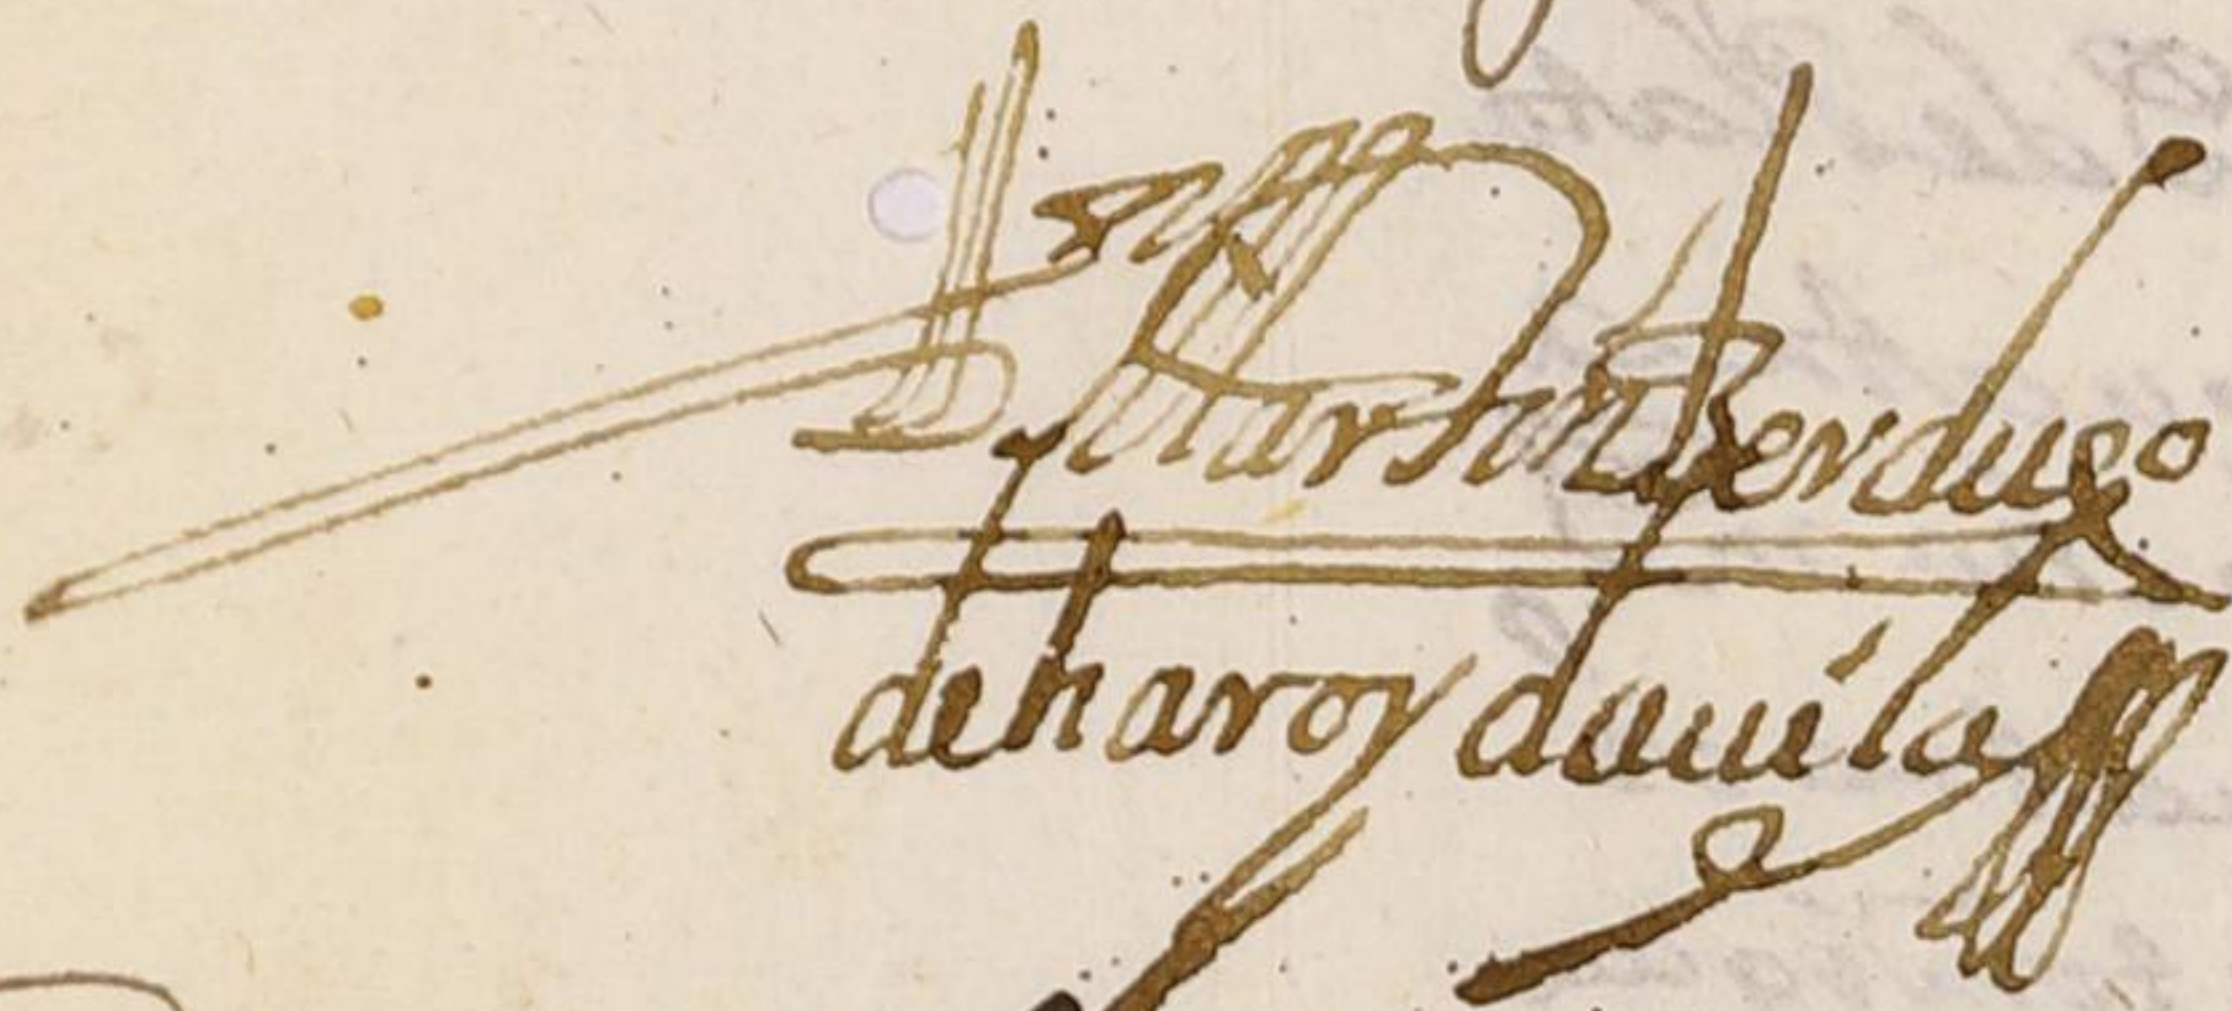 Martin Berdugo
de haro y dauila